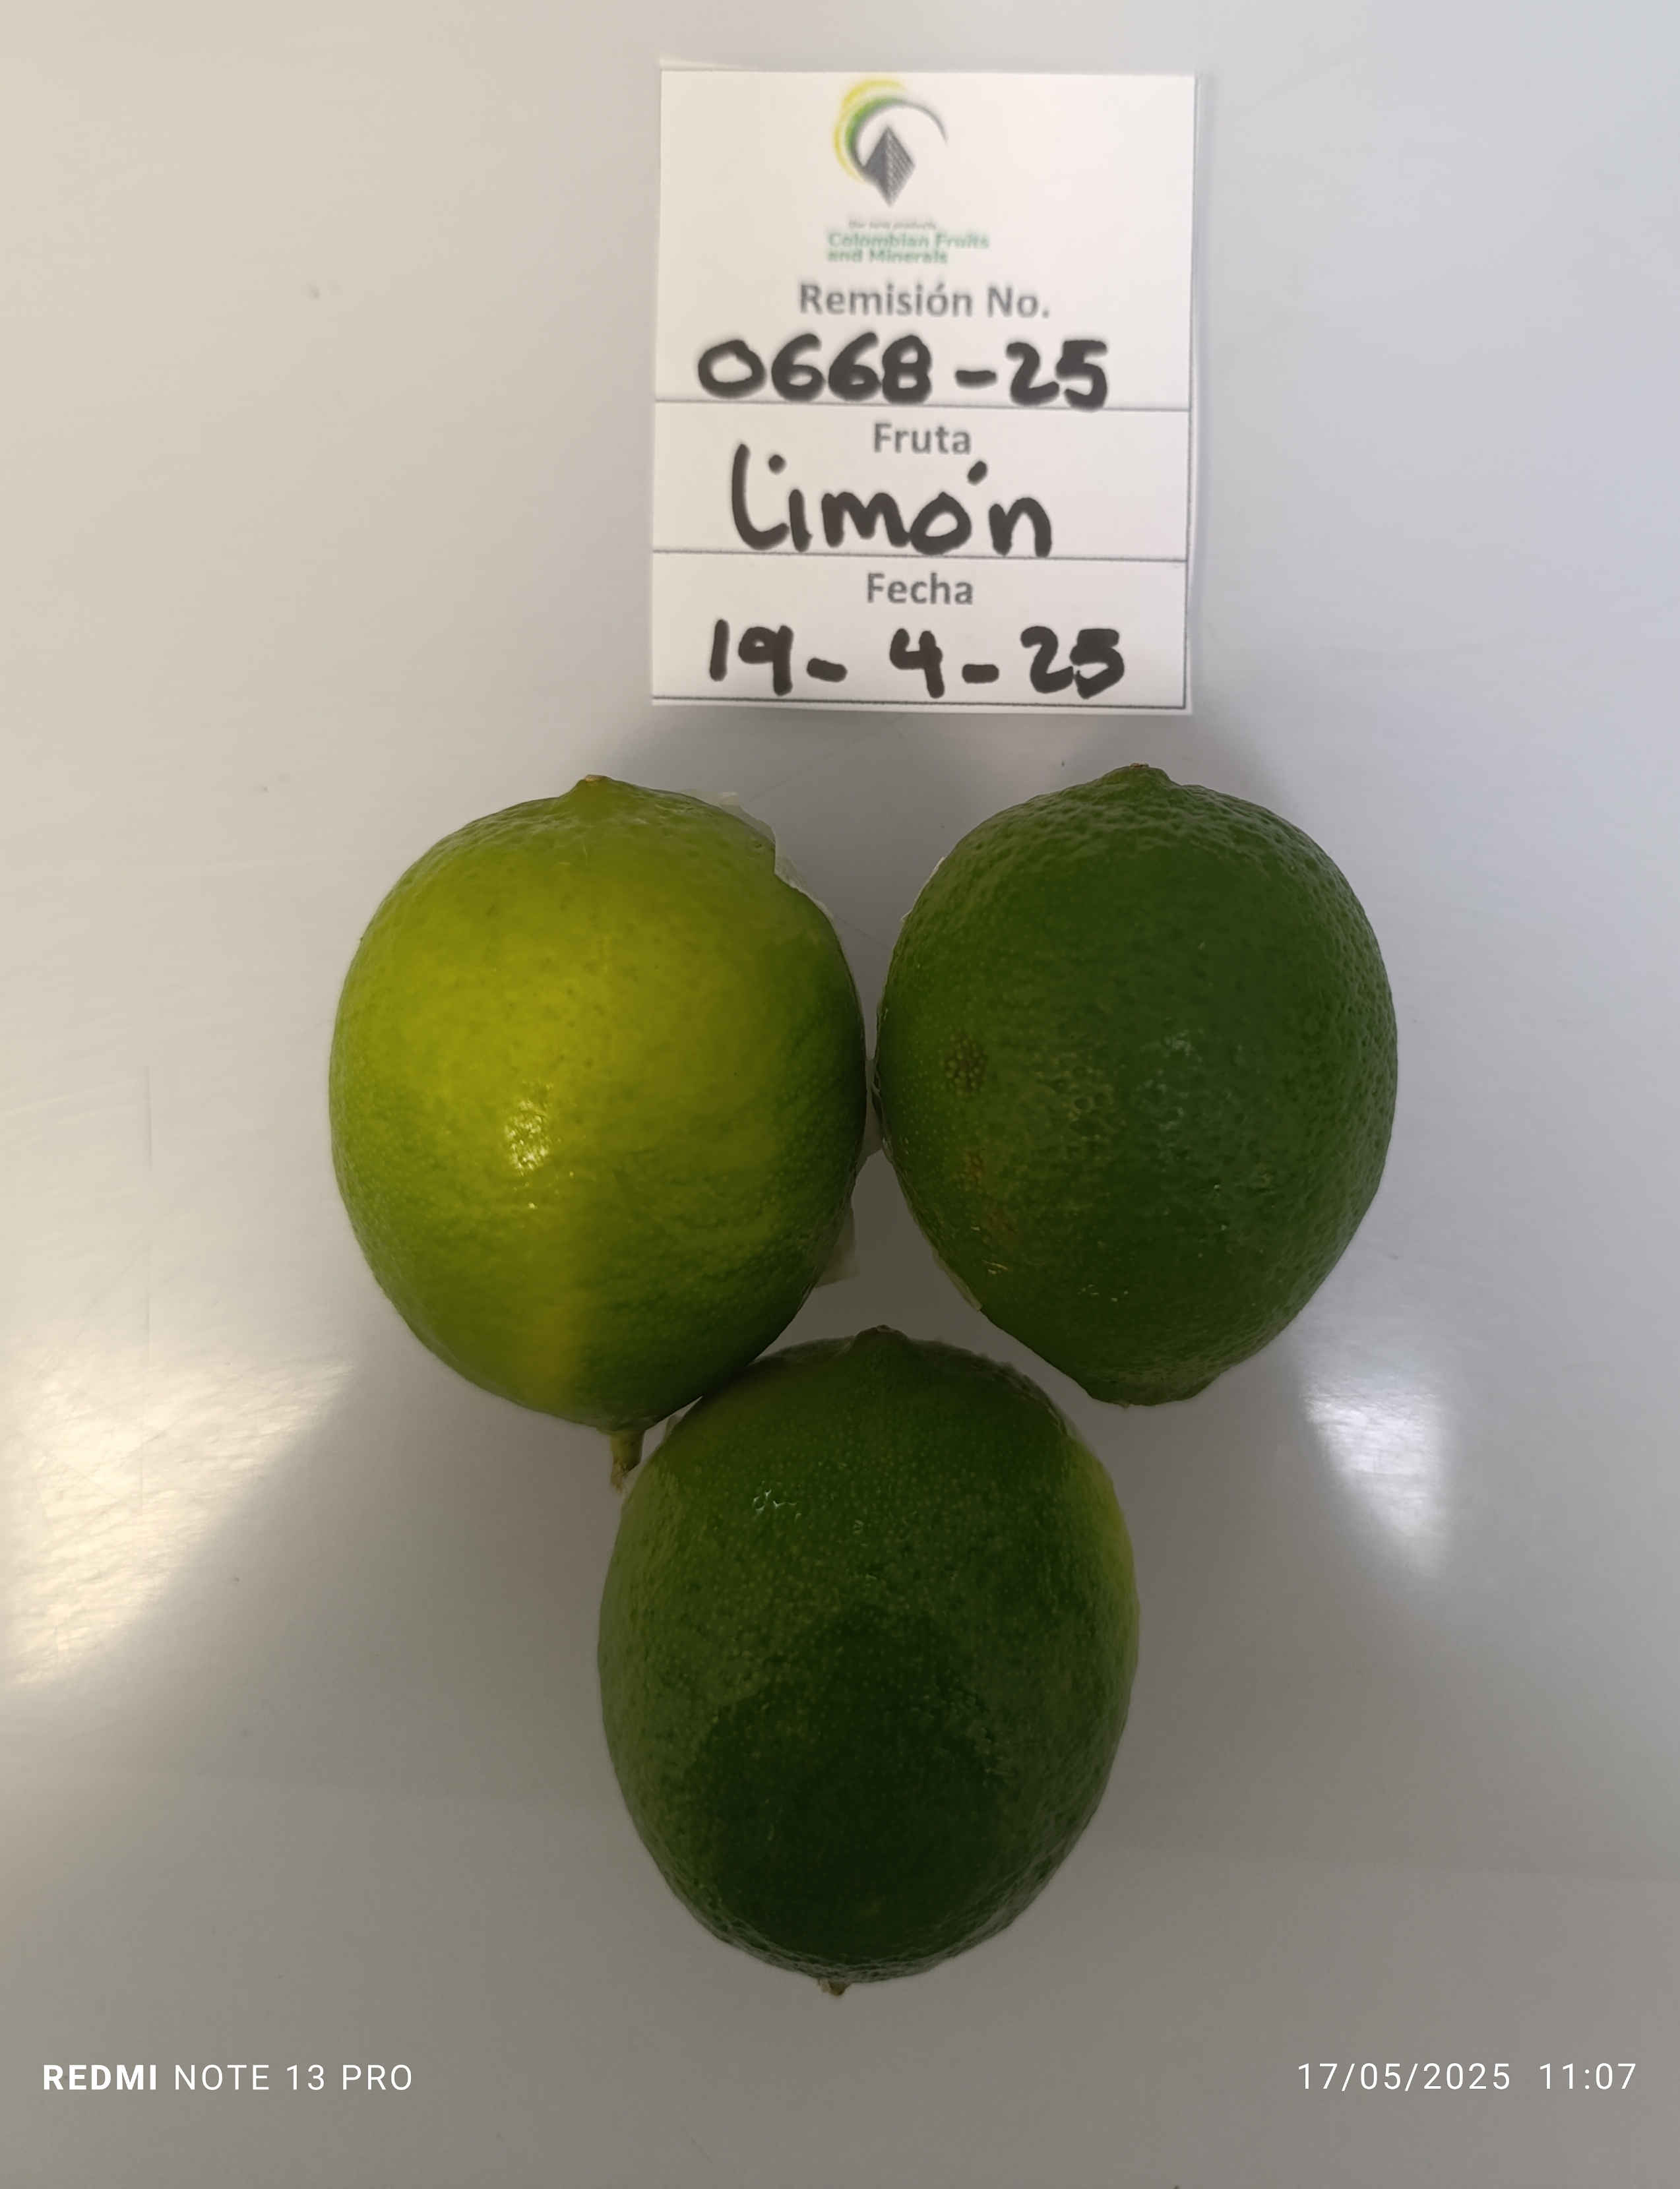 Our best products
Colombian Fruits
and Minerals
Remisión No.
0668-25
Fruta
Limón
Fecha
19-4-25
REDMI NOTE 13 PRO
17/05/2025 11:07